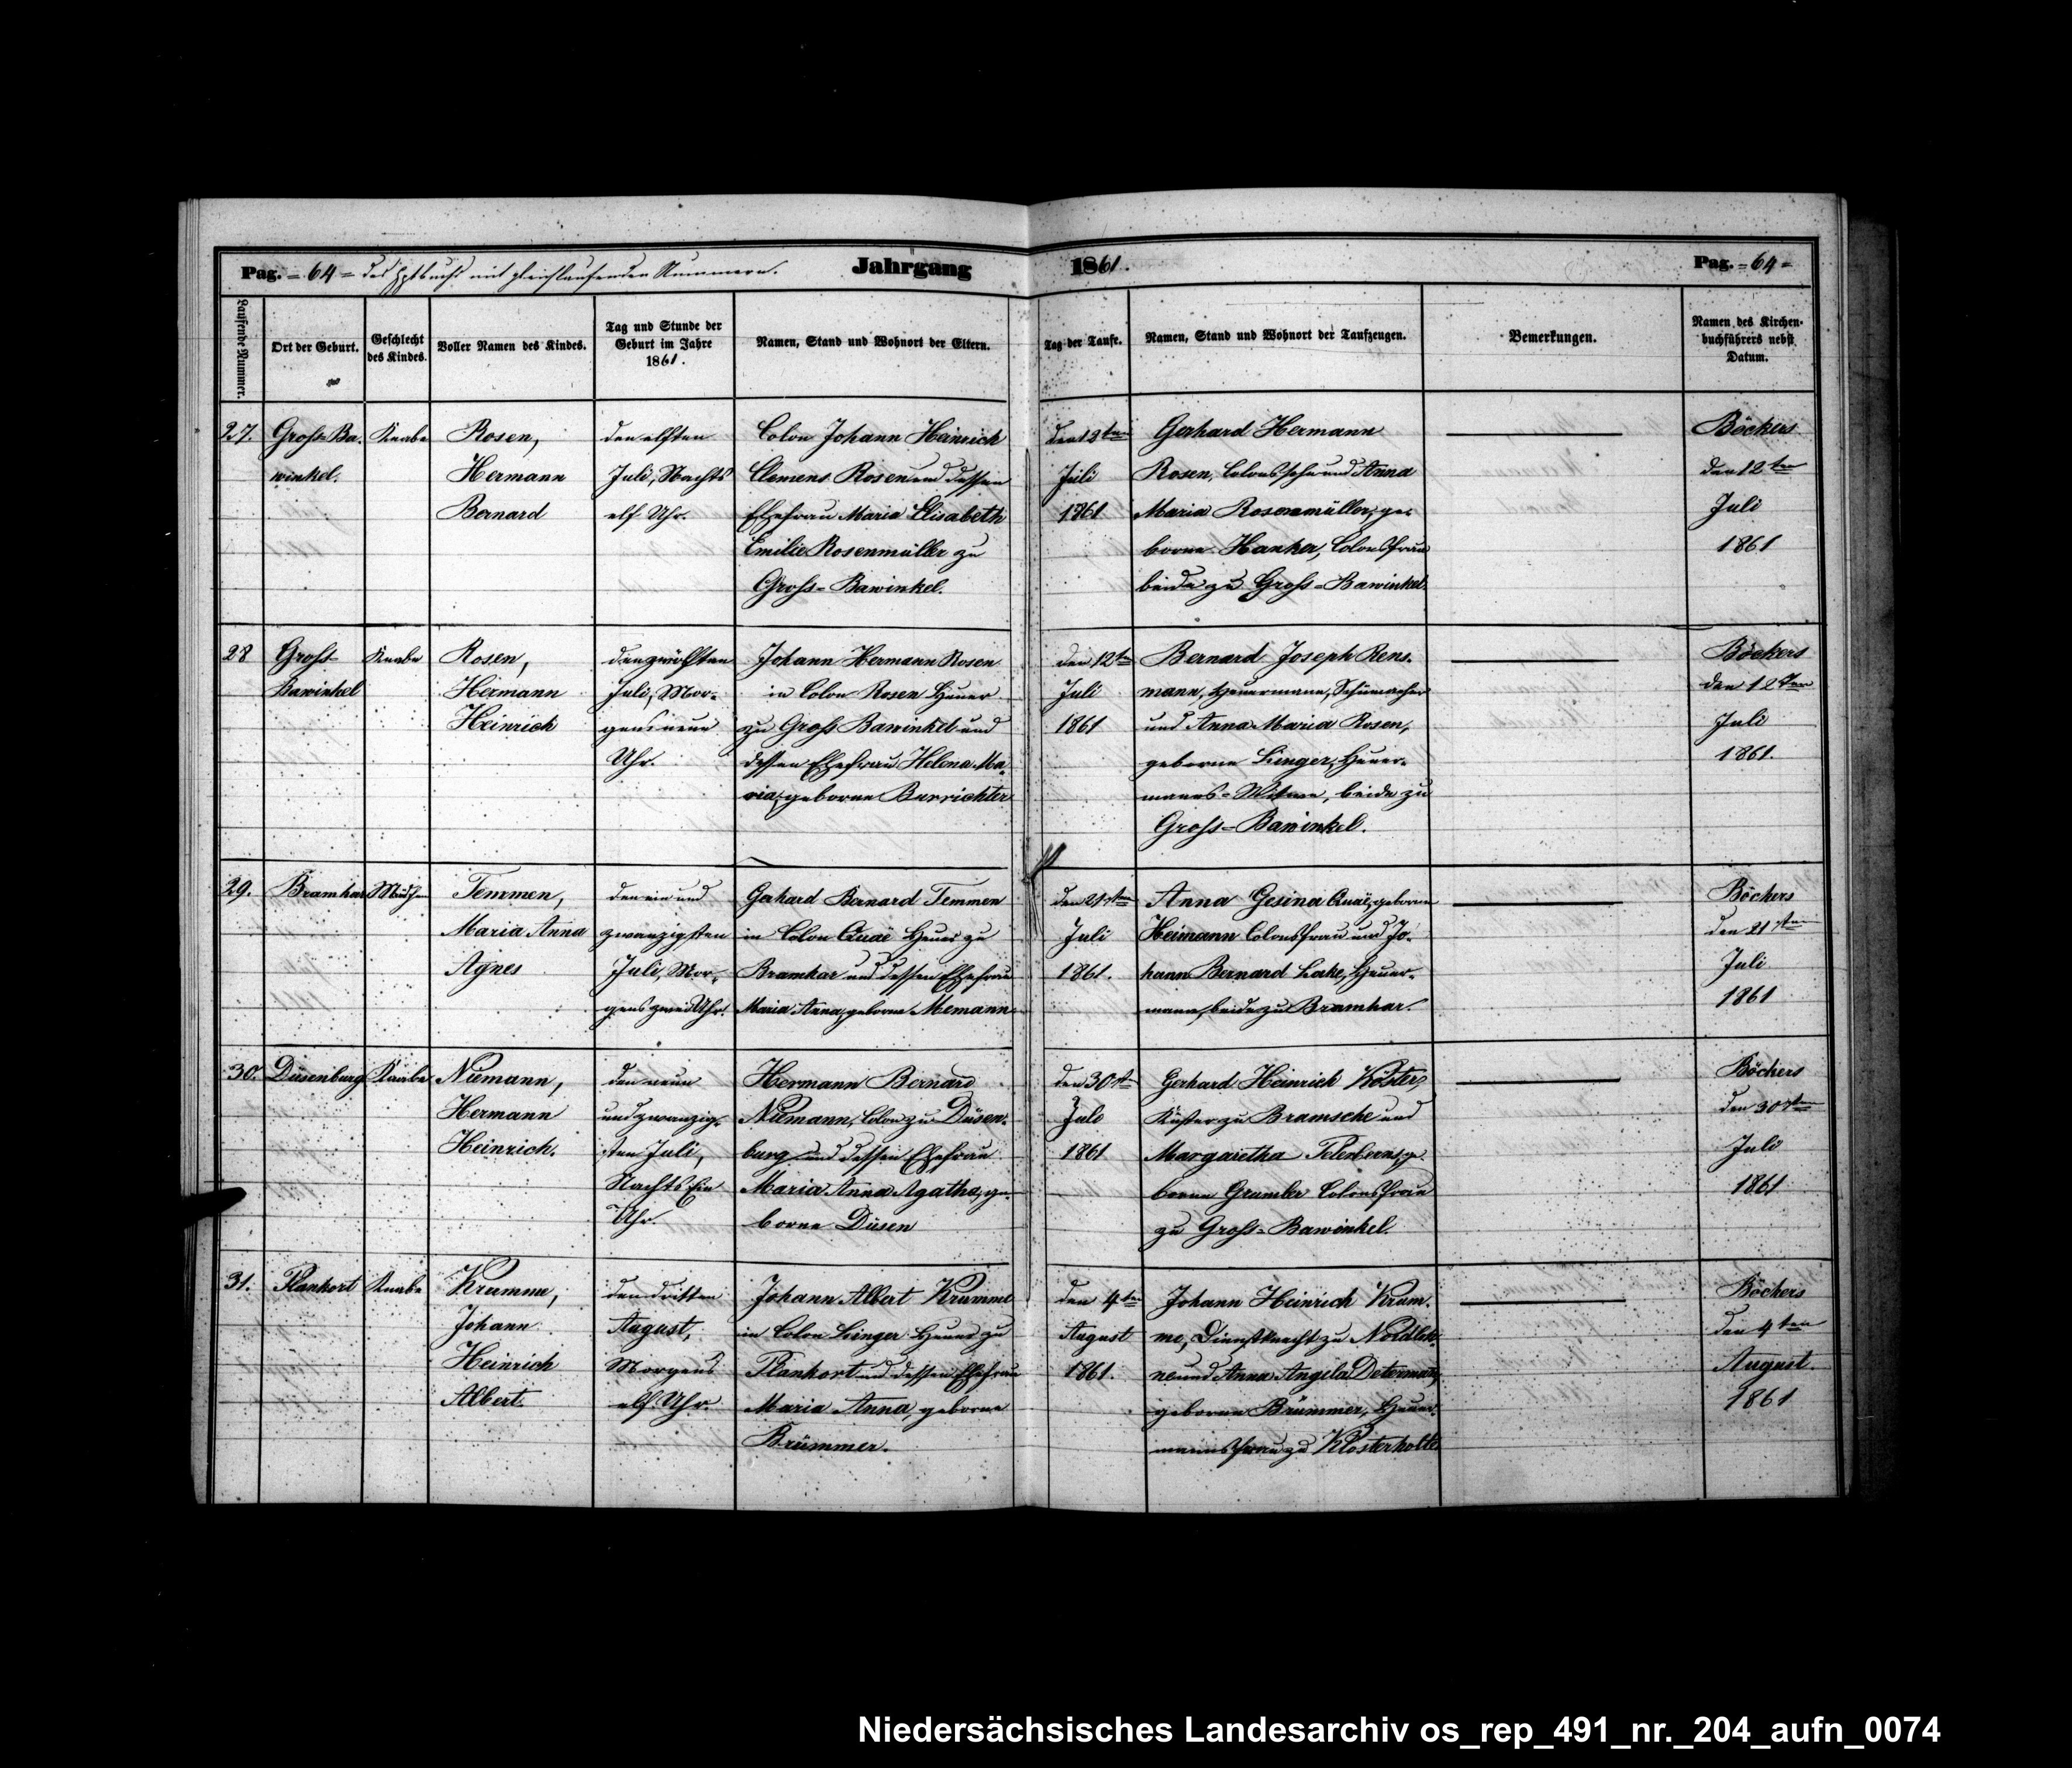 Pag. = 64 = des Hptbuchs mit gleichlaufenden Nummern. Jahrgang 1861. Pag. = 64 =
Laufende Nummer.
Ort der Geburt.
Geschlecht
des Kindes.
Voller Namen des Kindes.
Tag und Stunde der
Geburt im Jahre
1861.
Namen, Stand und Wohnort der Eltern.
Tag der Taufe.
Namen, Stand und Wohnort der Taufzeugen.
Bemerkungen.
Namen des Kirchen-
buchführers nebst
Datum.
27.
Gross-Ba-
winkel.
Knabe
Rosen,
Hermann
Bernard
den elften
Juli, Nachts
elf Uhr.
Colon Johann Heinrich
Clemens Rosen und dessen
Ehefrau Maria Elisabeth
Emilie Rosenmüller zu
Gross-Bawinkel.
Juli
1861
Gerhard Hermann
Rosen, Colonssohn und Anna
Maria Rosenmüller, ge-
borne Hanker, Colonsfrau
beide zu Gross-Bawinkel.
Böckers
den 12ten
Juli
1861
28
Gross-
Bawinkel
Knabe
Rosen,
Hermann
Heinrich
den zwölften
Juli, Mor-
gens neun
Uhr.
Johann Hermann Rosen
in Colon Rosen Heuer
zu Gross Bawinkel und
dessen Ehefrau Helena Ma-
ria, geborne Burrichter
den 12ten
Juli
1861
Bernard Joseph Rens-
mann, Heuermann, Schumacher
und Anna Maria Rosen,
geborne Linger, Heuer-
manns-Witwe, beide zu
Gross-Bawinkel.
Böckers
den 12ten
Juli
1861.
29.
Bramhar
Mädchen
Temmen,
Maria Anna
Agnes
den ein und
zwanzigsten
Juli, Mor-
gens zwei Uhr.
Gerhard Bernard Temmen
in Colon Quaë Heuer zu
Bramhar und dessen Ehefrau
Maria Anna, geborne Memann
den 21sten
Juli
1861.
Anna Gesina Quaë, geborne
Heimann Colonsfrau und Jo-
hann Bernard Lake, Heuer-
mann, beide zu Bramhar.
Böckers
den 21sten
Juli
1861
30.
Düsenburg
Knabe
Niemann,
Hermann
Heinrich.
den neun
und zwanzig-
sten Juli,
Nachts Ein
Uhr.
Hermann Bernard
Niemann, Colon zu Düsen-
burg und dessen Ehefrau
Maria Anna Agatha, ge-
borne Düsen
den 30st
Juli
1861
Gerhard Heinrich Köster,
Küster zu Bramsche und
Margaretha ge-
borne Colonsfrau
zu Gross-Bawinkel.
Böckers
den 30sten
Juli
1861
31.
Plankort
Knabe
Krumme,
Johann
Heinrich
Albert.
den dritten
August,
Morgens
elf Uhr.
Johann Albert Krumme
in Colon Linger Heuer zu
Plankort und dessen Ehefrau
Maria Anna, geborne
Brümmer.
den 4ten
August
1861.
Johann Heinrich Krum-
me, Dienstknecht zu
und Anna Angela
geborne Brümmer, Heuer-
mannsfrau zu Klosterholte
Böckers
den 4ten
August
1861
Niedersächsisches Landesarchiv os_rep_491_nr._204_aufn_0074